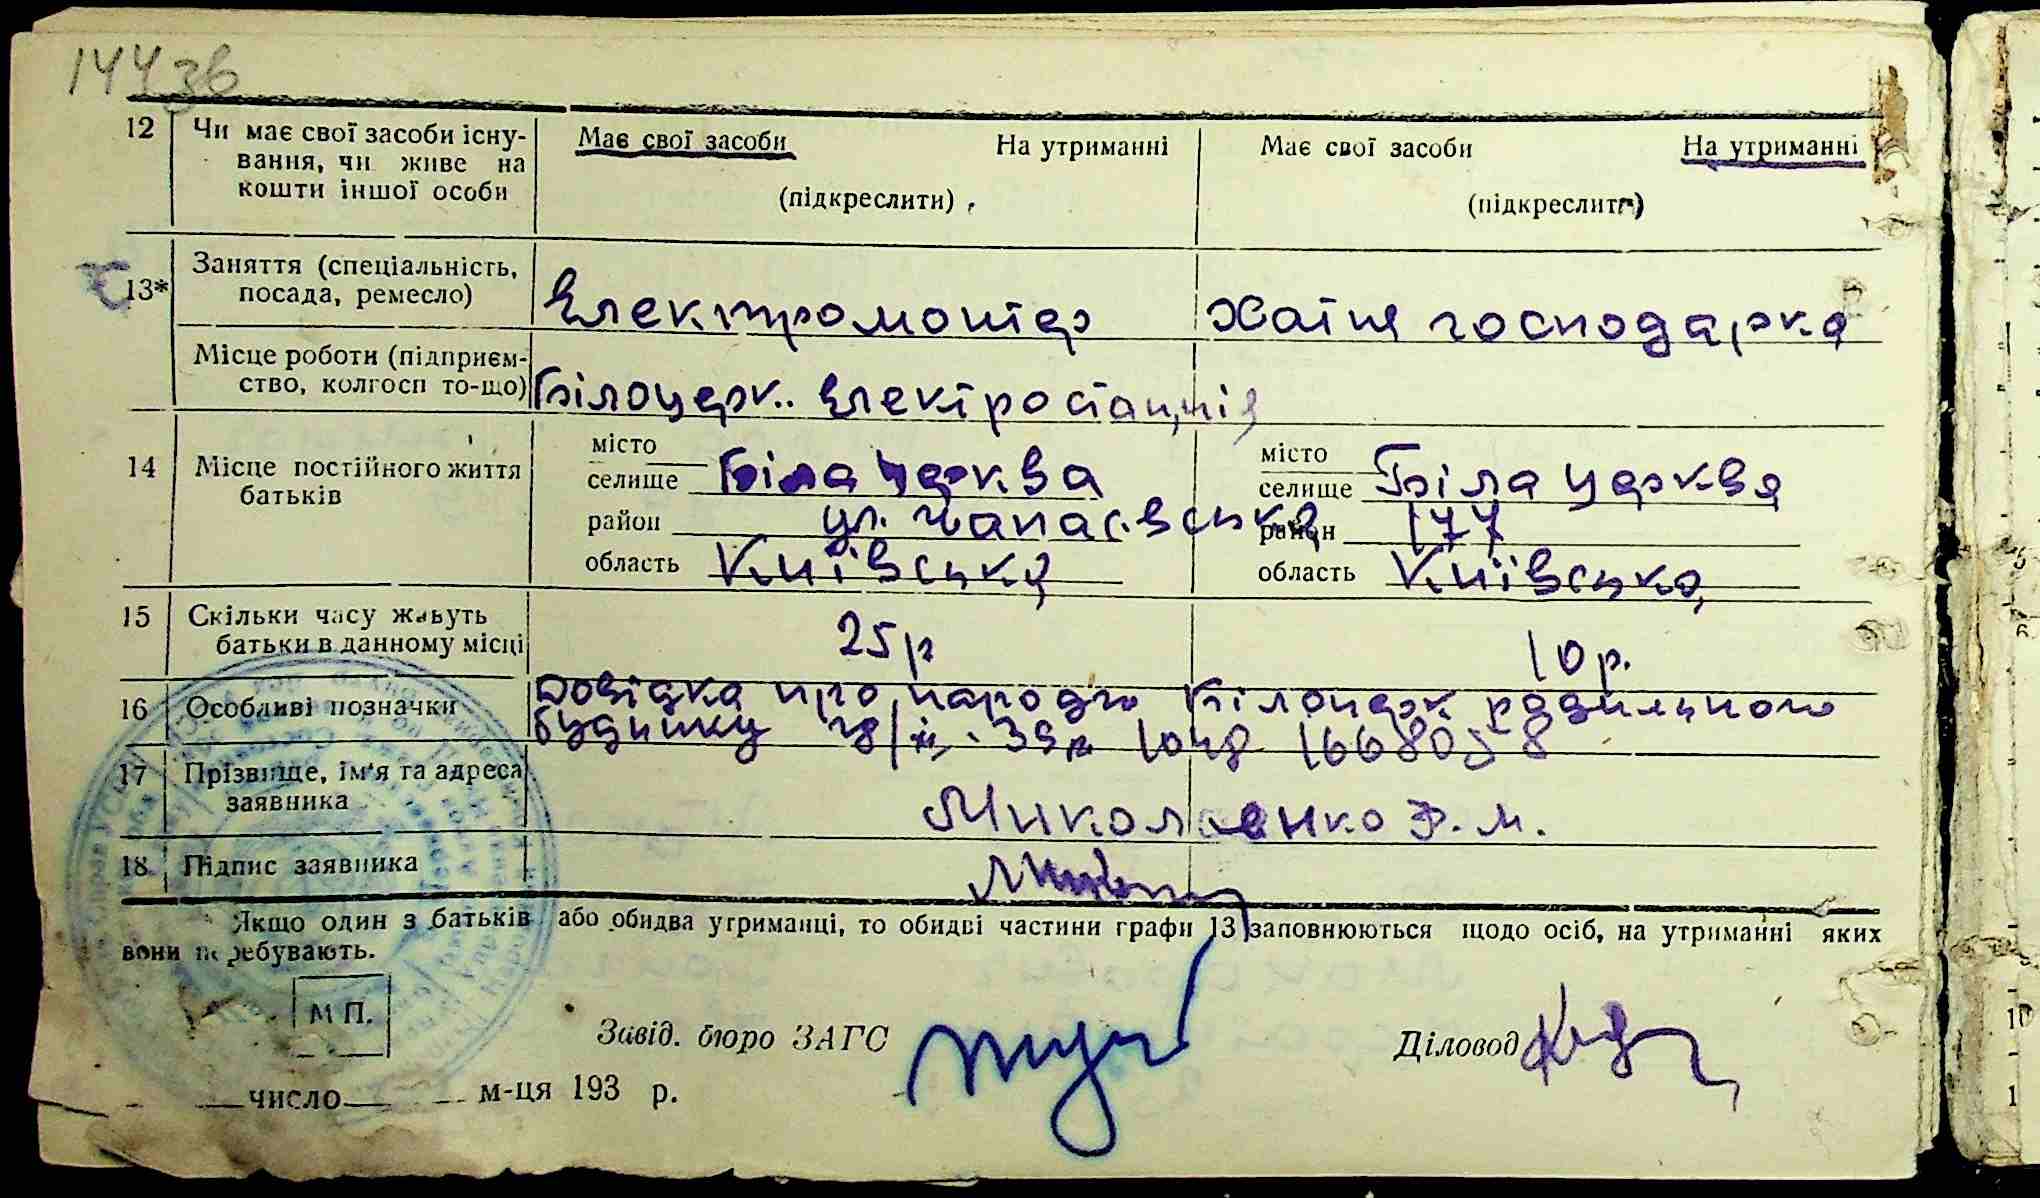 144зв
12 Чи має свої засоби існу-
вання, чи живе на
кошти іншої особи
Має свої засоби На утриманні
(підкреслити)
Має свої засоби На утриманні
(підкреслити)
13* Заняття (спеціальність,
посада, ремесло)
Електромонтер Хатня господарка
Місце роботи (підприєм-
ство, колгосп то-що)
Білоцерк. Електростанція
14 Місце постійного життя
батьків
місто
селище Біла Церква
район ул. Чапаєвська 177
область Київська
місто
селище Біла Церква
район
область Київська
15 Скільки часу живуть
батьки в данному місці
25 р 10 р.
16 Особливі позначки
Довідка про народж Білоцерк родильного
будинку 39р 1668058
17 Прізвище, ім'я та адреса
заявника
Миколаенко Ф. М.
18. Підпис заявника
Якщо один з батьків або обидва утриманці, то обидві частини графи 13 заповнюються щодо осіб, на утриманні яких
вони перебувають.
М П.
Завід. бюро ЗАГС
Діловод
число м-ця 193 р.